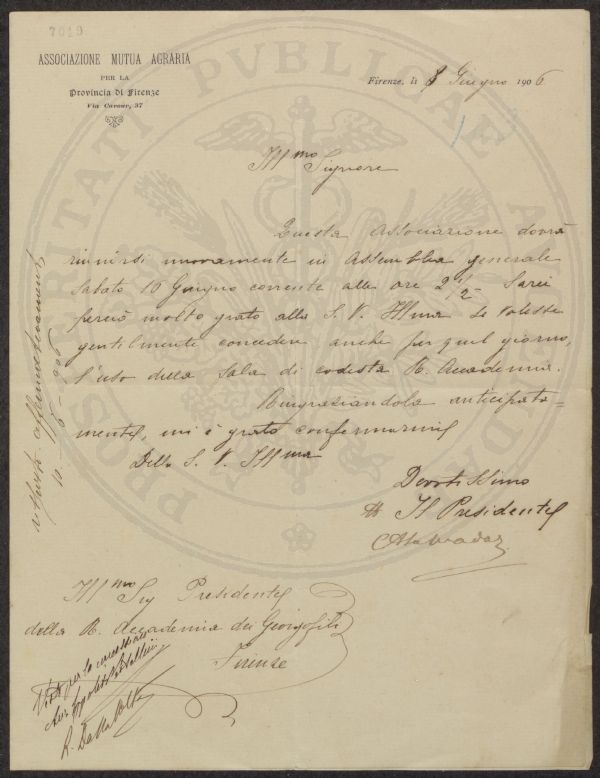 7019
ASSOCIAZIONE MUTUA AGRARIA
PER LA
Provincia di Firenze
Via Cavour, 37
Firenze, li 8 Giugno 1906
PROSPERITATI PVBLICAE
Ill.mo Signore
Questa Associazione dovrà
riunirsi nuovamente in Assemblea generale
Sabato 16 Giugno corrente alle ore 2 1/2 - Sarei
perciò molto grato alla S. V. Ill.ma se volesse
gentilmente concedere anche per quel giorno,
l'uso della Sala di codesta R. Accademia.
Ringraziandola anticipata=
mente, mi è grato confermarmi
Della S. V. Ill.ma
Devotissimo
Il Presidente
Ill.mo Sig Presidente
della R. Accademia dei Georgofili
Firenze
risposto affermativamente
10-6-906
Visto per la concessione
R. Dalla Volta